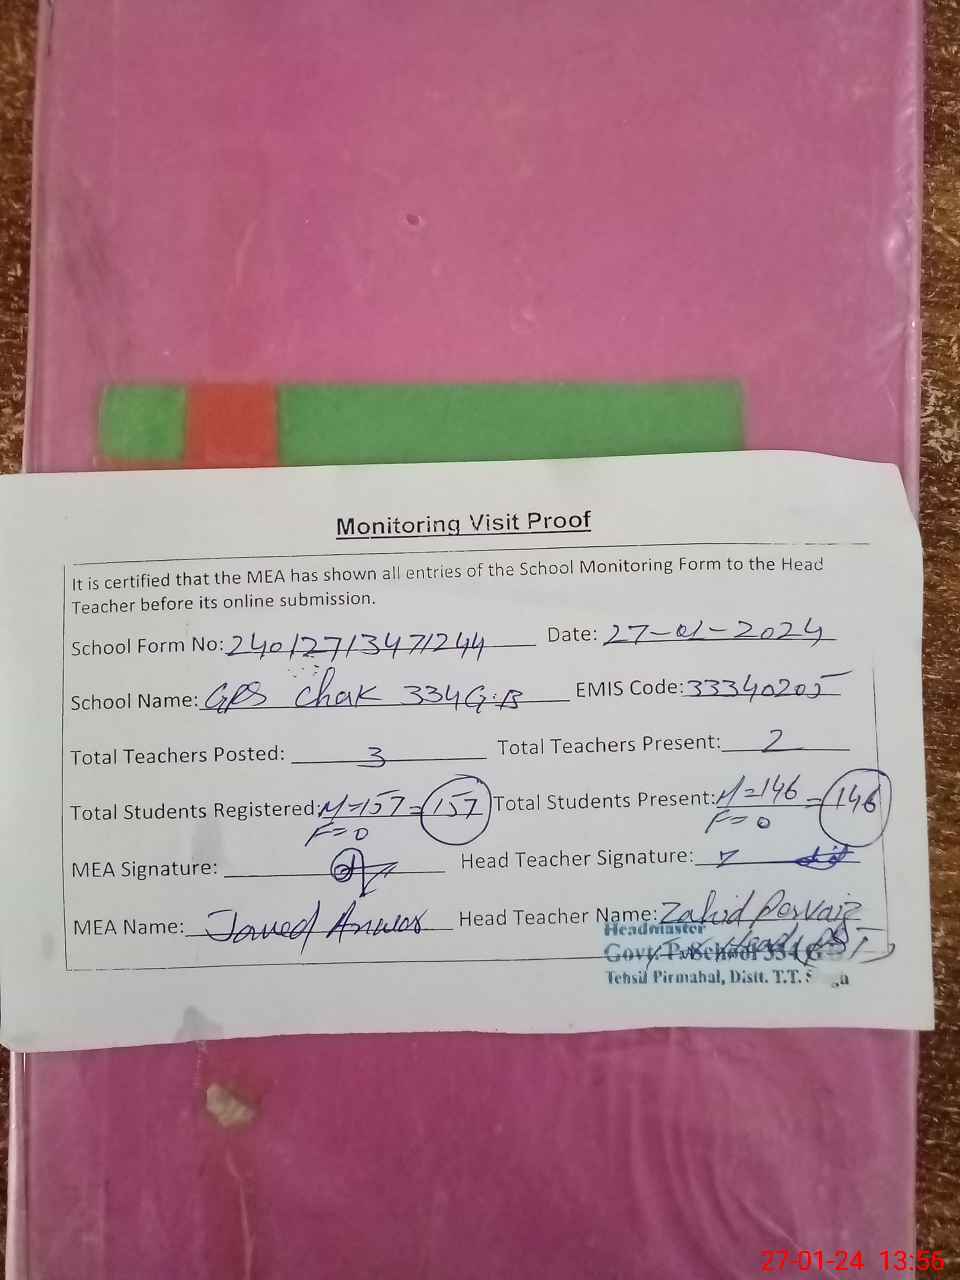 Monitoring Visit Proof
It is certified that the MEA has shown all entries of the School Monitoring Form to the Head
Teacher before its online submission.
School Form No: 24012713471244 Date: 27-01-2024
School Name: GPS Chak 334 G.B EMIS Code: 33340205
Total Teachers Posted: 3 Total Teachers Present: 2
Total Students Registered: M=157 = 157 Total Students Present: M=146 = 146
F=0 F=0
MEA Signature: Head Teacher Signature:
MEA Name: Javed Anwar Head Teacher Name: Zahid Pervaiz
Headmaster
Govt. P. School 334 G
Tehsil Pirmahal, Distt. T.T.
27-01-24 13:56